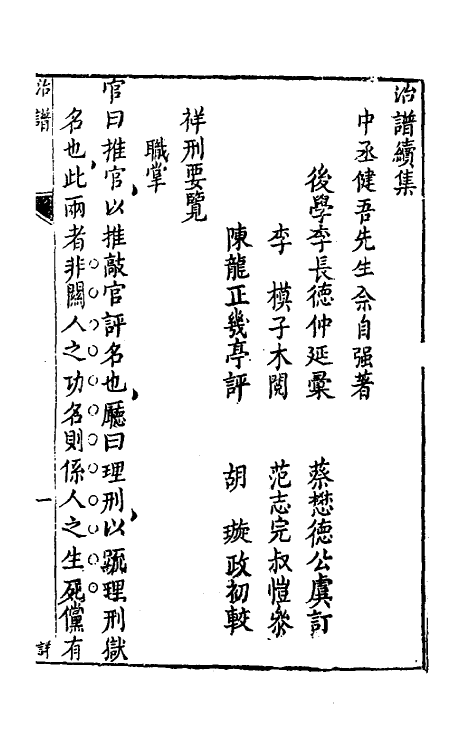 治譜續集
中丞健吾先生佘自强著
後學李長德仲延彙　蔡懋德公虞訂
李　模子木閱　范志完叔愷叅
陳龍正幾亭評　胡　璇政初較
祥刑要覽
職掌
官曰推官以推敲官評名也廳曰理刑以疏理刑獄
名也此兩者非關人之功名則係人之生死儻有
治譜
一